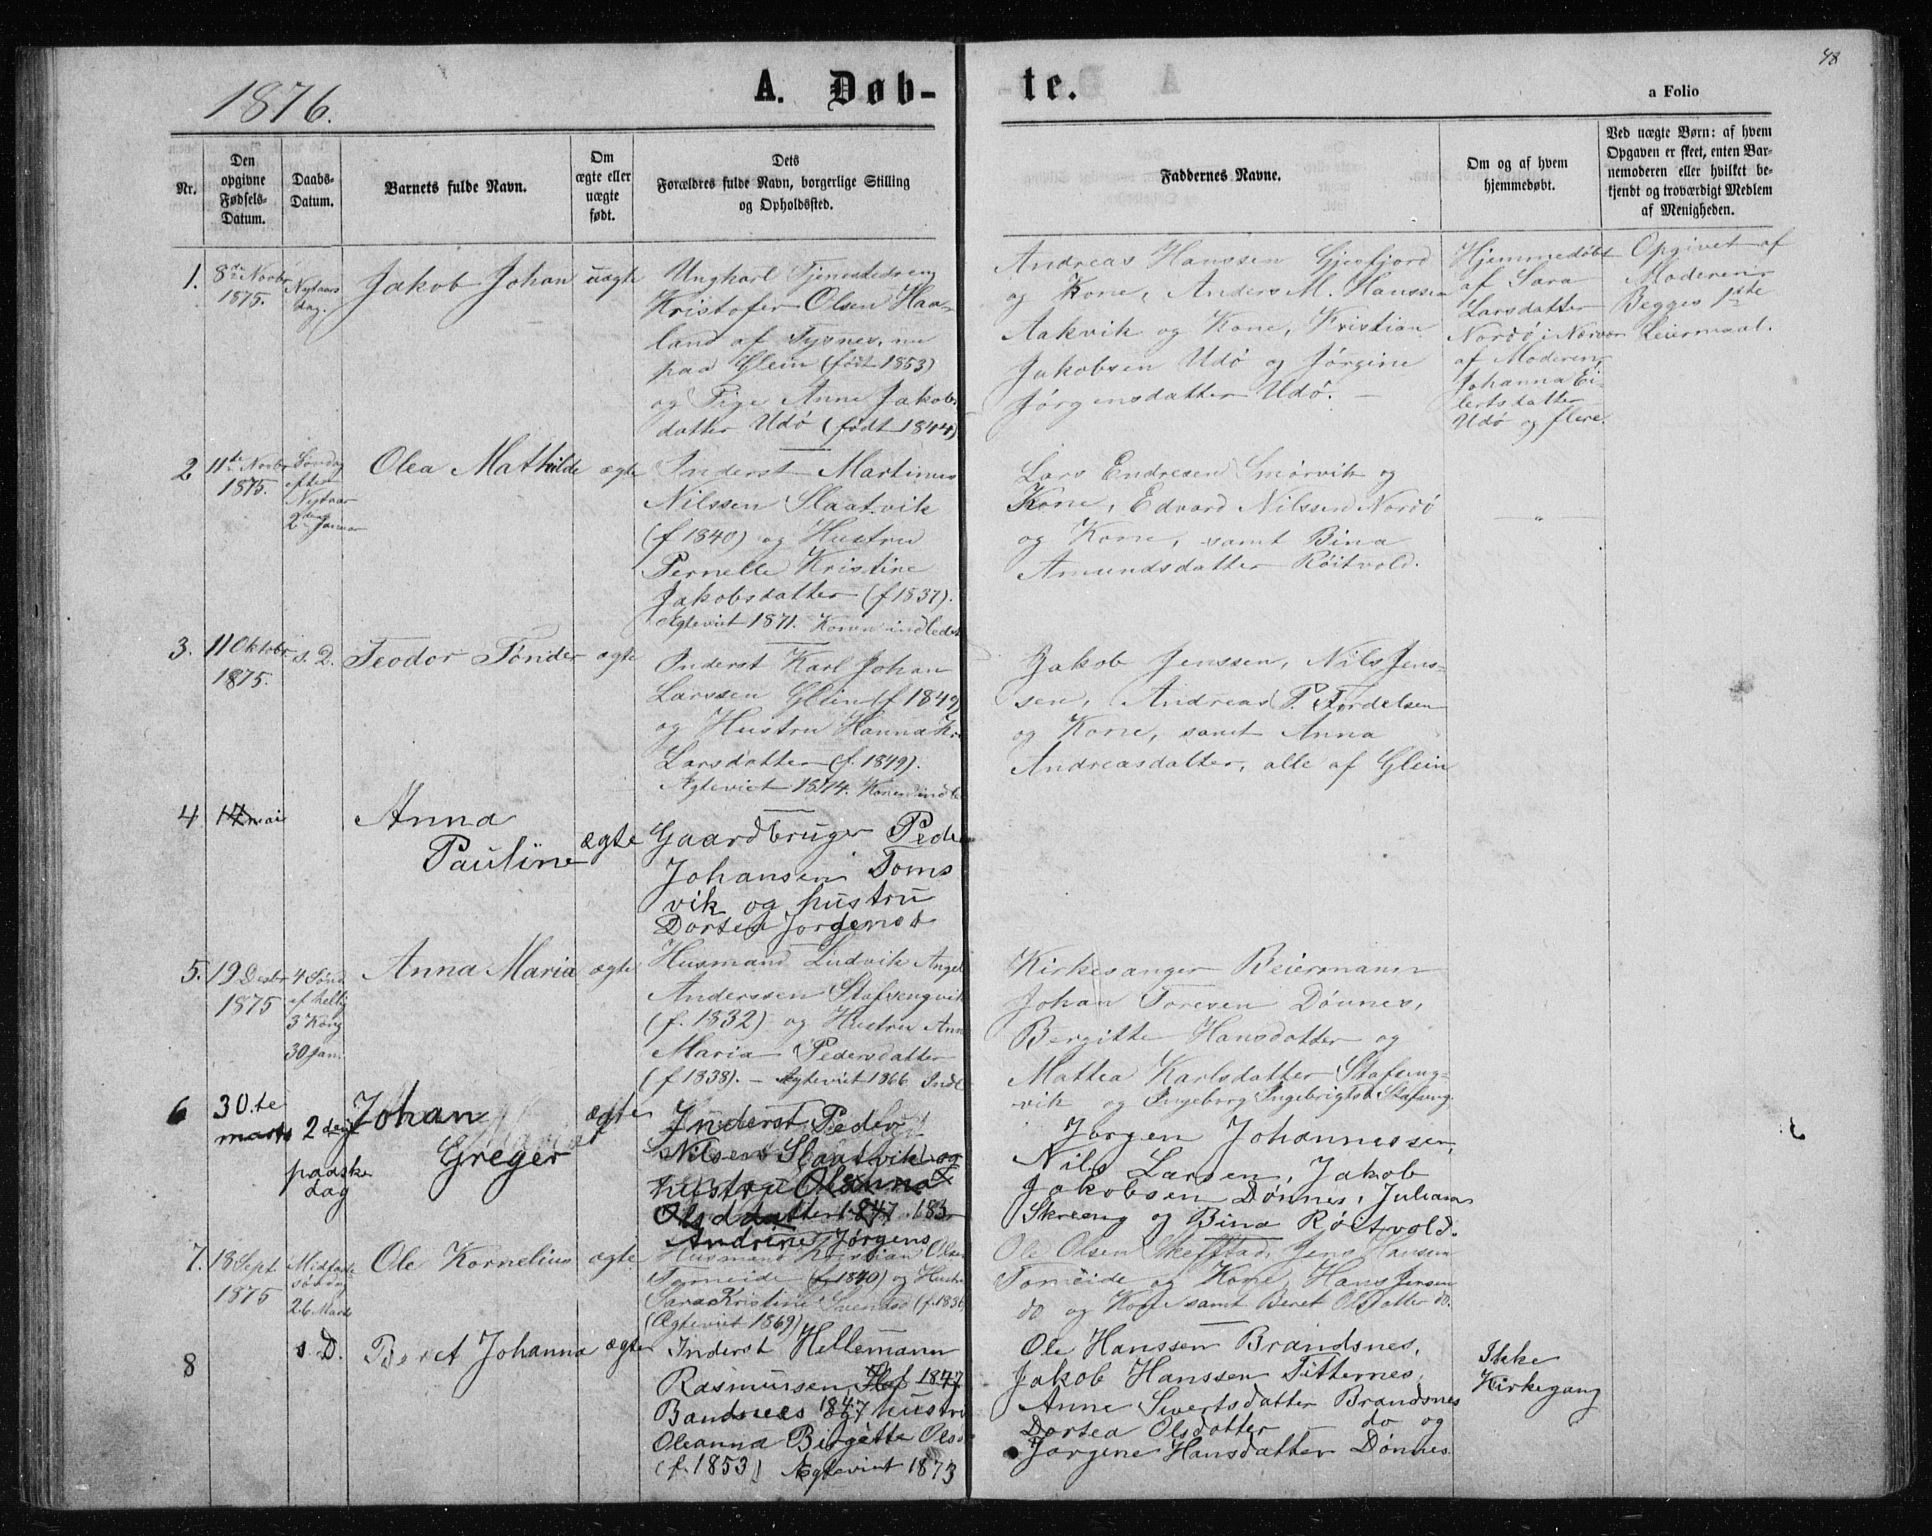 48
1876.
A. Døb-
te.
a Folio
Nr.
Den
opgivne
Fødsels-
Datum.
Daabs-
Datum.
Barnets fulde Navn.
Om
ægte eller
uægte
født.
Dets
Forældres fulde Navn, borgerlige Stilling
og Opholdssted.
Faddernes Navne.
Om og af hvem
hjemmedøbt.
Ved uægte Børn: af hvem
Opgaven er skeet, enten Bar-
nemoderen eller hvilket be-
kjendt og troværdigt Medlem
af Menigheden.
1.
8de Novbr
1875.
Nytaars
dag.
Jakob Johan
uægte
Ungkarl Tjenestedreng
Kristofer Olsen Haa-
land af Tysnes, nu
paa Glein (født 1853)
og Pige Anne Jakobs
datter Udö (født 1844)
Andreas Hanssen Gjesfjord
og Kone, Anders M. Hanssen
Aakvik og Kone, Kristian
Jakobsen Udö og Jörgine
Jörgensdatter Udö. —
Hjemmedöbt
af Sara
Larsdatter
Nordö i Nærvær
af Moderen,
Johanna Ei-
lertsdatter
Udö og flere.
Opgivet af
Moderen
Begges 1ste
Leiermaal.
2
11te Novbr
1875.
Søndag
efter
Nytaar
2den Januar
Olea Mathilde
ægte
Inderst Martinus
Nilssen Slaatvik
(f 1840) og Hustru
Pernelle Kristine
Jakobsdatter (f 1837).
Ægteviet 1871. Konen indledet
Lars Endresen Smörvik og
Kone, Edvard Nilssen Nordö
og Kone, samt Bina
Amundsdatter Röitvold.
— " —
3.
11 Oktobr
1875.
s. D.
Teodor Tönder
ægte
Inderst Karl Johan
Larssen Glein (f 1849)
og Hustru Hanna Kr
Larsdatter (f. 1849).
Ægteviet 1874. Konen indle
Jakob Jenssen, Nils Jens-
sen, Andreas P. Tordelsen
og Kone, samt Anna
Andreasdatter, alle af Glein
4
17 mai
Anna
Pauline
ægte
Gaardbruger Peder
Johansen Toms
vik og hustru
Dortea Jorgensd
5.
19 Desbr
1875
4 Sønd
ef hellig
3 Kong
30 Jan.
Anna Maria
ægte
Husmand Ludvik Angel
Anderssen Stafsengvik
(f. 1832) og Hustru Ann
Maria Pedersdatter
(f 1838). — Ægteviet 1866 Indl
Kirkesanger Beiermann
Johan Toresen Dönnes,
Bergitte Hansdatter og
Mattea Karlsdatter Stafseng-
vik og Ingeborg Ingebrigtsd Stafseng.
6
30.te
marts
2 den
paaske
dag
Johan
Greger
ægte
Inderst Peder
Nilsen Slaatvik og
hustru Oleanna
Olsdatter 1847 183
Andrine Jørgens
Jørgen Johannessen,
Nils Larsen, Jakob
Jakobsen Dønnes, Julian
Skreeng og Bina Røitvold.
7.
13 Sept
1875
Midfaste
søndag
26 Marts
Ole Kornelius
ægte
Husmand Kristian Olsen
Tomeide (f 1840) og Hustru
Sara Kristine Svendsd (f. 1836
(Ægteviet 1869)
Ole Olsen Skeftstad, Jens Hansen
Tomeide og Kone, Hans Jensen
do og Kone samt Beret Olsdatter do.
8
s. D.
Beret Johanna
ægte
Inderst Hellemann
Rasmussen 1847
Bandsnees 1847 hustru
Oleanna Birgette Olsd
(f. 1853) Ægteviet 1873
Ole Hanssen Brandsnes,
Jakob Hanssen Titternes,
Anne Sivertsdatter Brandsnes
Dortea Olsdatter — do og
Jørgine Hansdatter Dønnes
Ikke
Kirkegang